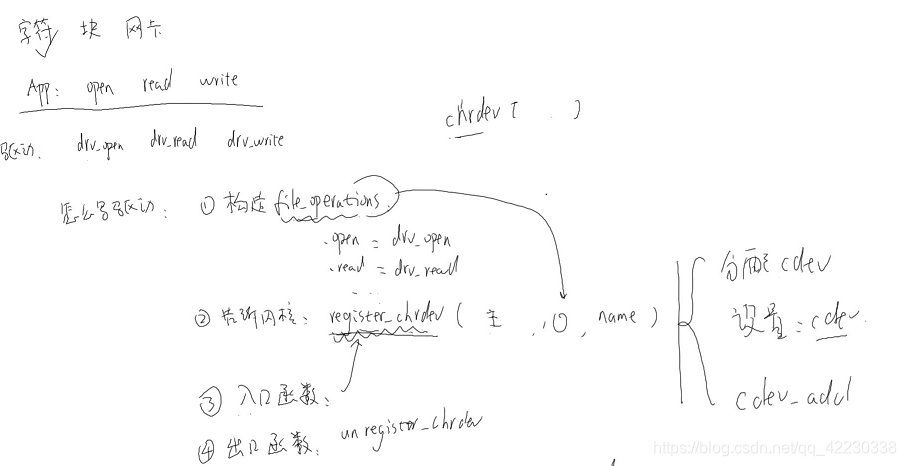 字符 块 网卡
App: open read write
chrdev ( )
驱动. drv_open drv_read drv_write
怎么写驱动: ① 构造 file_operations.
.open = drv_open
.read = drv_read
...
② 告诉内核: register_chrdev ( 主 , , name )
分配 cdev
设置: cdev.
cdev_add
③ 入口函数:
④ 出口函数. unregister_chrdev
https://blog.csdn.net/qq_42230338